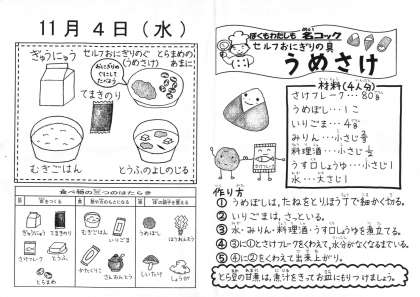 11月4日(水)
ぎゅうにゅう
セルフおにぎりのぐ
(うめさけ)
とらまめの
あまに
おにぎりの
ぐにして
たべよう
てまきのり
むぎごはん
とうふのよしのじる
食べ物の三つのはたらき
ぎゅうにゅう
てまきのり
むぎごはん
いりごま
うめぼし
ほうれんそう
さけフレーク
とうふ
かたくりこ
さんおんとう
しょうが
とらまめ
ぼくもわたしも 名コック
セルフおにぎりの具
うめさけ
材料(4人分)
さけフレーク…80g
うめぼし…1こ
いりごま…4g
みりん…小さじ
料理酒…小さじ
うす口しょうゆ…小さじ1
水…大さじ1
作り方
① うめぼしは、たねをとりほう丁で細かく切る。
② いりごまは、さっといる。
③ 水・みりん・料理酒・うす口しょうゆを煮立てる。
④ ③に①とさけフレークをくわえて、水分がなくなるまでいる。
⑤ ④に②をくわえて出来上がり。
とら豆の甘煮は、煮汁をきってお皿にもりつけましょう。